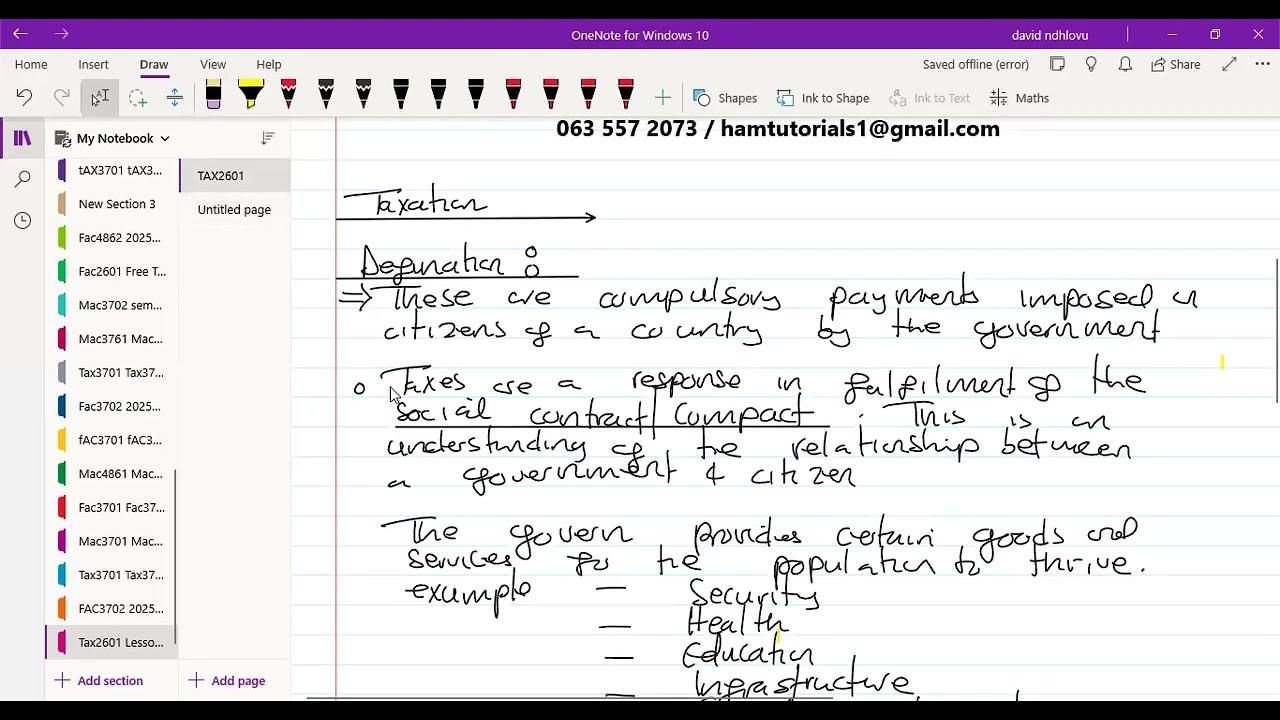 OneNote for Windows 10
david ndhlovu
Home Insert Draw View Help
Saved offline (error)
Share
Shapes
Ink to Shape
Ink to Text
Maths
My Notebook
tAX3701 tAX3...
New Section 3
Fac4862 2025...
Fac2601 Free T...
Mac3702 sem...
Mac3761 Mac...
Tax3701 Tax37...
Fac3702 2025...
fAC3701 fAC3...
Mac4861 Mac...
Fac3701 Fac37...
Mac3701 Mac...
Tax3701 Tax37...
FAC3702 2025...
Tax2601 Lesso...
Add section
TAX2601
Untitled page
Add page
063 557 2073 / hamtutorials1@gmail.com
Taxation
Defination :
⇒ These are compulsory payments imposed on
citizens of a country by the government
o Taxes are a response in fulfilment of the
social contract/compact. This is an
understanding of the relationship between
a government & citizen
The govern provides certain goods and
services for the population to thrive.
example — Security
— Health
— Education
— Infrastructure